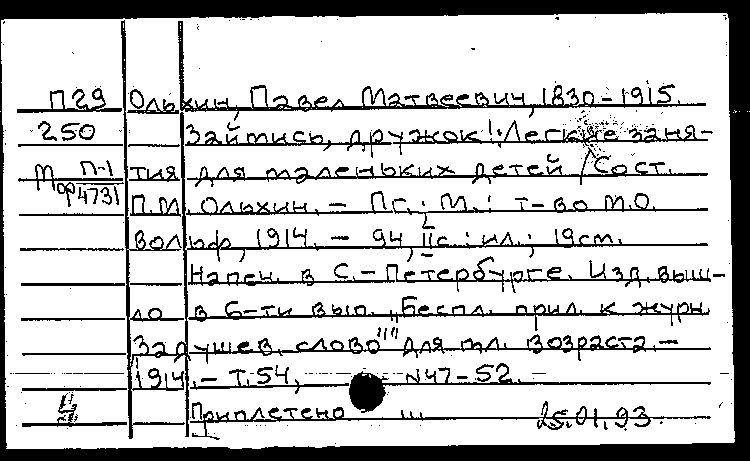 П29 Ольхин, Павел Матвеевич, 1830-1915.
250 Займись, дружок!: Легкие заня-
Мор П-1/4731 тия для маленьких детей / Сост.
П.М. Ольхин. - Пг.; М.: т-во М.О.
Вольф, 1914. - 94, IIс.: ил.; 19см.
Напеч. в С.-Петербурге. Изд. выш-
ло в 6-ти вып. "Беспл. прил. к журн.
Задушев. слово"" для мл. возраста. -
1914. - Т.54, N47-52.
Приплетено
25.01.93.